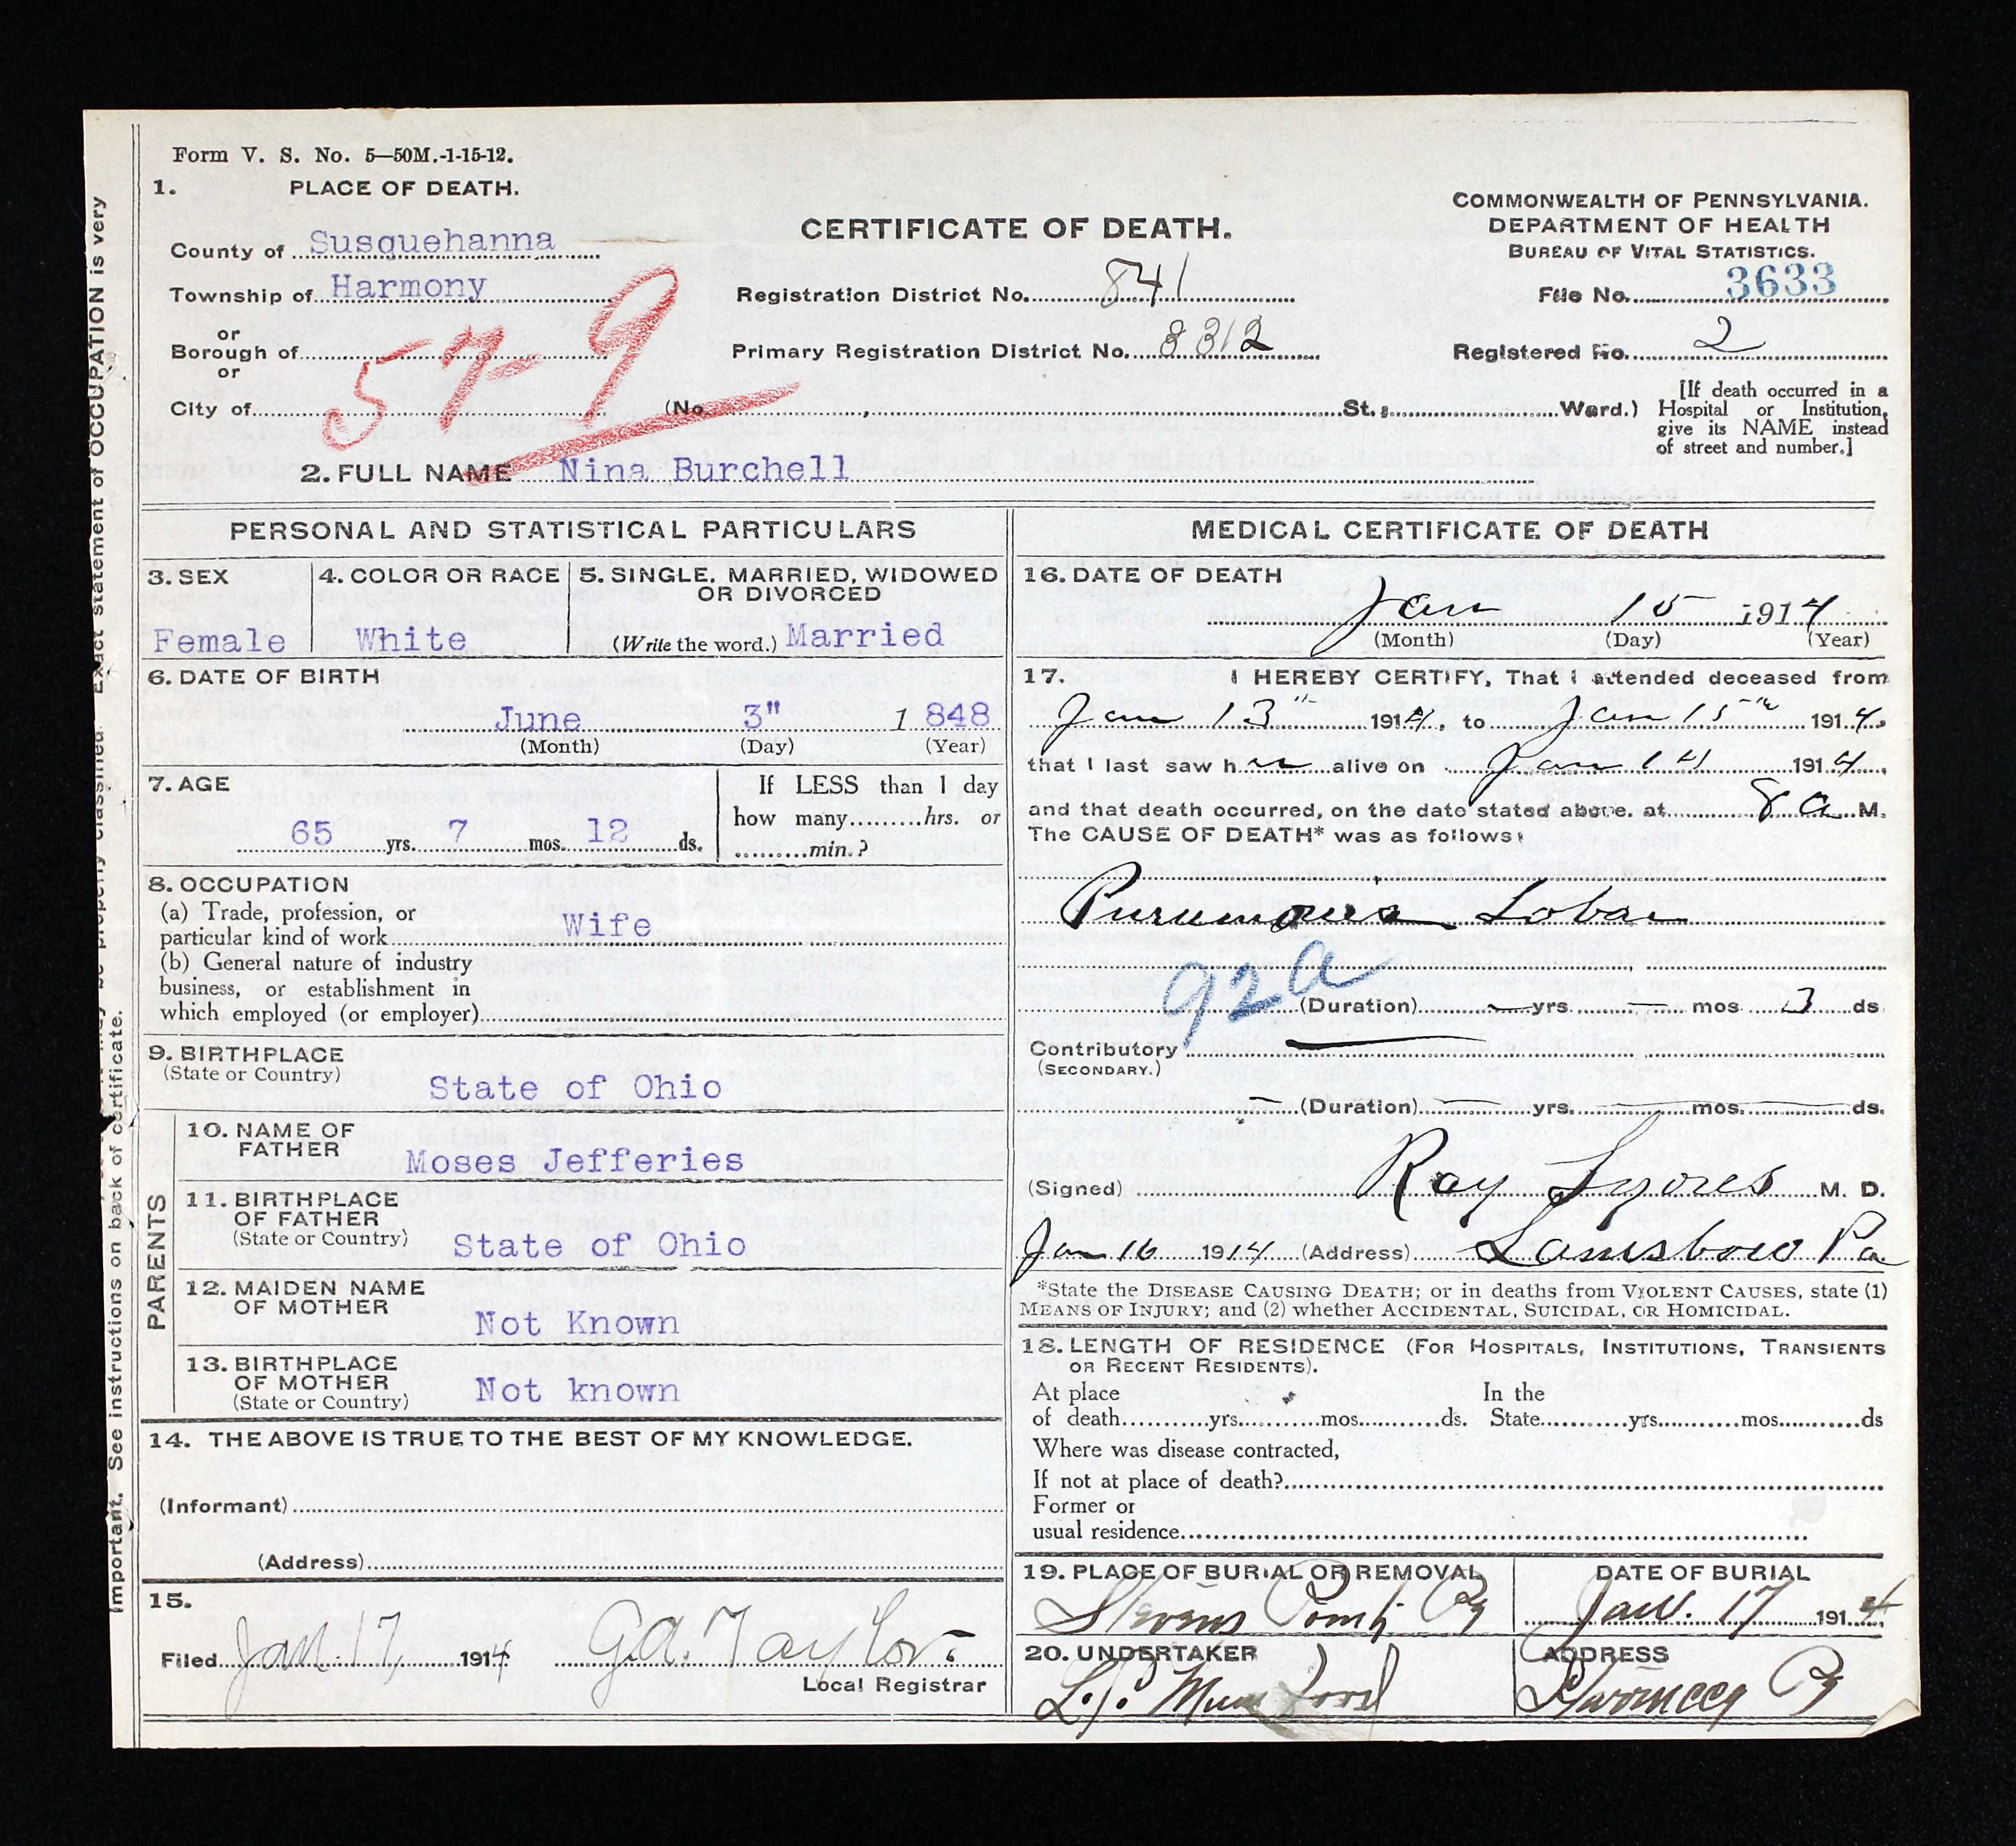 Form V. S. No. 5—50M.-1-15-12.
1. PLACE OF DEATH.
County of Susquehanna
Township of Harmony
or
Borough of
or
City of
57-9
CERTIFICATE OF DEATH.
Registration District No. 841
Primary Registration District No. 8312
(No. , St.; Ward.)
COMMONWEALTH OF PENNSYLVANIA.
DEPARTMENT OF HEALTH
BUREAU OF VITAL STATISTICS.
File No. 3633
Registered No. 2
[If death occurred in a
Hospital or Institution,
give its NAME instead
of street and number.]
2. FULL NAME Nina Burchell
PERSONAL AND STATISTICAL PARTICULARS
3. SEX
Female
4. COLOR OR RACE
White
5. SINGLE, MARRIED, WIDOWED
OR DIVORCED
(Write the word.) Married
6. DATE OF BIRTH
June 3" 1 848
(Month) (Day) (Year)
7. AGE
65 yrs. 7 mos. 12 ds.
If LESS than 1 day
how many hrs. or
min.?
8. OCCUPATION
(a) Trade, profession, or
particular kind of work Wife
(b) General nature of industry
business, or establishment in
which employed (or employer)
9. BIRTHPLACE
(State or Country)
State of Ohio
PARENTS
10. NAME OF
FATHER
Moses Jefferies
11. BIRTHPLACE
OF FATHER
(State or Country) State of Ohio
12. MAIDEN NAME
OF MOTHER
Not Known
13. BIRTHPLACE
OF MOTHER
(State or Country)
Not known
14. THE ABOVE IS TRUE TO THE BEST OF MY KNOWLEDGE.
(Informant)
(Address)
15.
Filed Jan. 17, 1914 G.A. Taylor
Local Registrar
MEDICAL CERTIFICATE OF DEATH
16. DATE OF DEATH
Jan 15 1914
(Month) (Day) (Year)
17. I HEREBY CERTIFY, That I attended deceased from
Jan 13th 1914, to Jan 15th 1914,
that I last saw her alive on Jan 14 1914,
and that death occurred, on the date stated above, at 8 a M.
The CAUSE OF DEATH* was as follows:
Pneumonia Lobar
92a
(Duration) — yrs. — mos 3 ds
Contributory
(SECONDARY.)
(Duration) yrs. mos. ds.
(Signed) Ray M. D.
Jan 16 1914 (Address) Pa
*State the DISEASE CAUSING DEATH; or in deaths from VIOLENT CAUSES, state (1)
MEANS OF INJURY; and (2) whether ACCIDENTAL, SUICIDAL, OR HOMICIDAL.
18. LENGTH OF RESIDENCE (FOR HOSPITALS, INSTITUTIONS, TRANSIENTS
OR RECENT RESIDENTS).
At place In the
of death yrs. mos. ds. State yrs. mos. ds
Where was disease contracted,
If not at place of death?
Former or
usual residence
19. PLACE OF BURIAL OR REMOVAL
Stevens
DATE OF BURIAL
Jan. 17 1914
20. UNDERTAKER
L.P. Mumford
ADDRESS
Important. See instructions on back of certificate.
be properly classified. Exact statement of OCCUPATION is very